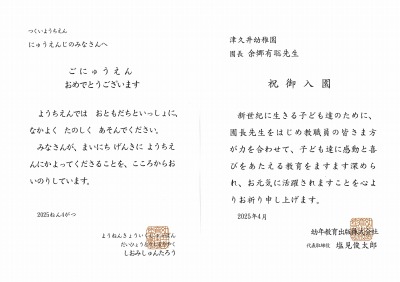 つくいようちえん
にゅうえんじのみなさんへ
ごにゅうえん
おめでとうございます
ようちえんでは　おともだちといっしょに、
なかよく　たのしく　あそんでください。
みなさんが、まいにち　げんきに　ようちえ
んにかよってくださることを、こころからお
いのりしています。
2025ねん4がつ
ようねんきょういくしゅっぱん
だいひょうとりしまりやく
しおみしゅんたろう
津久井幼稚園
園長　余郷有聡先生
祝御入園
新世紀に生きる子ども達のために、
園長先生をはじめ教職員の皆さま方
が力を合わせて、子ども達に感動と喜
びをあたえる教育をますます深めら
れ、お元気に活躍されますことを心よ
りお祈り申し上げます。
2025年4月
幼年教育出版株式会社
代表取締役　塩見俊太郎